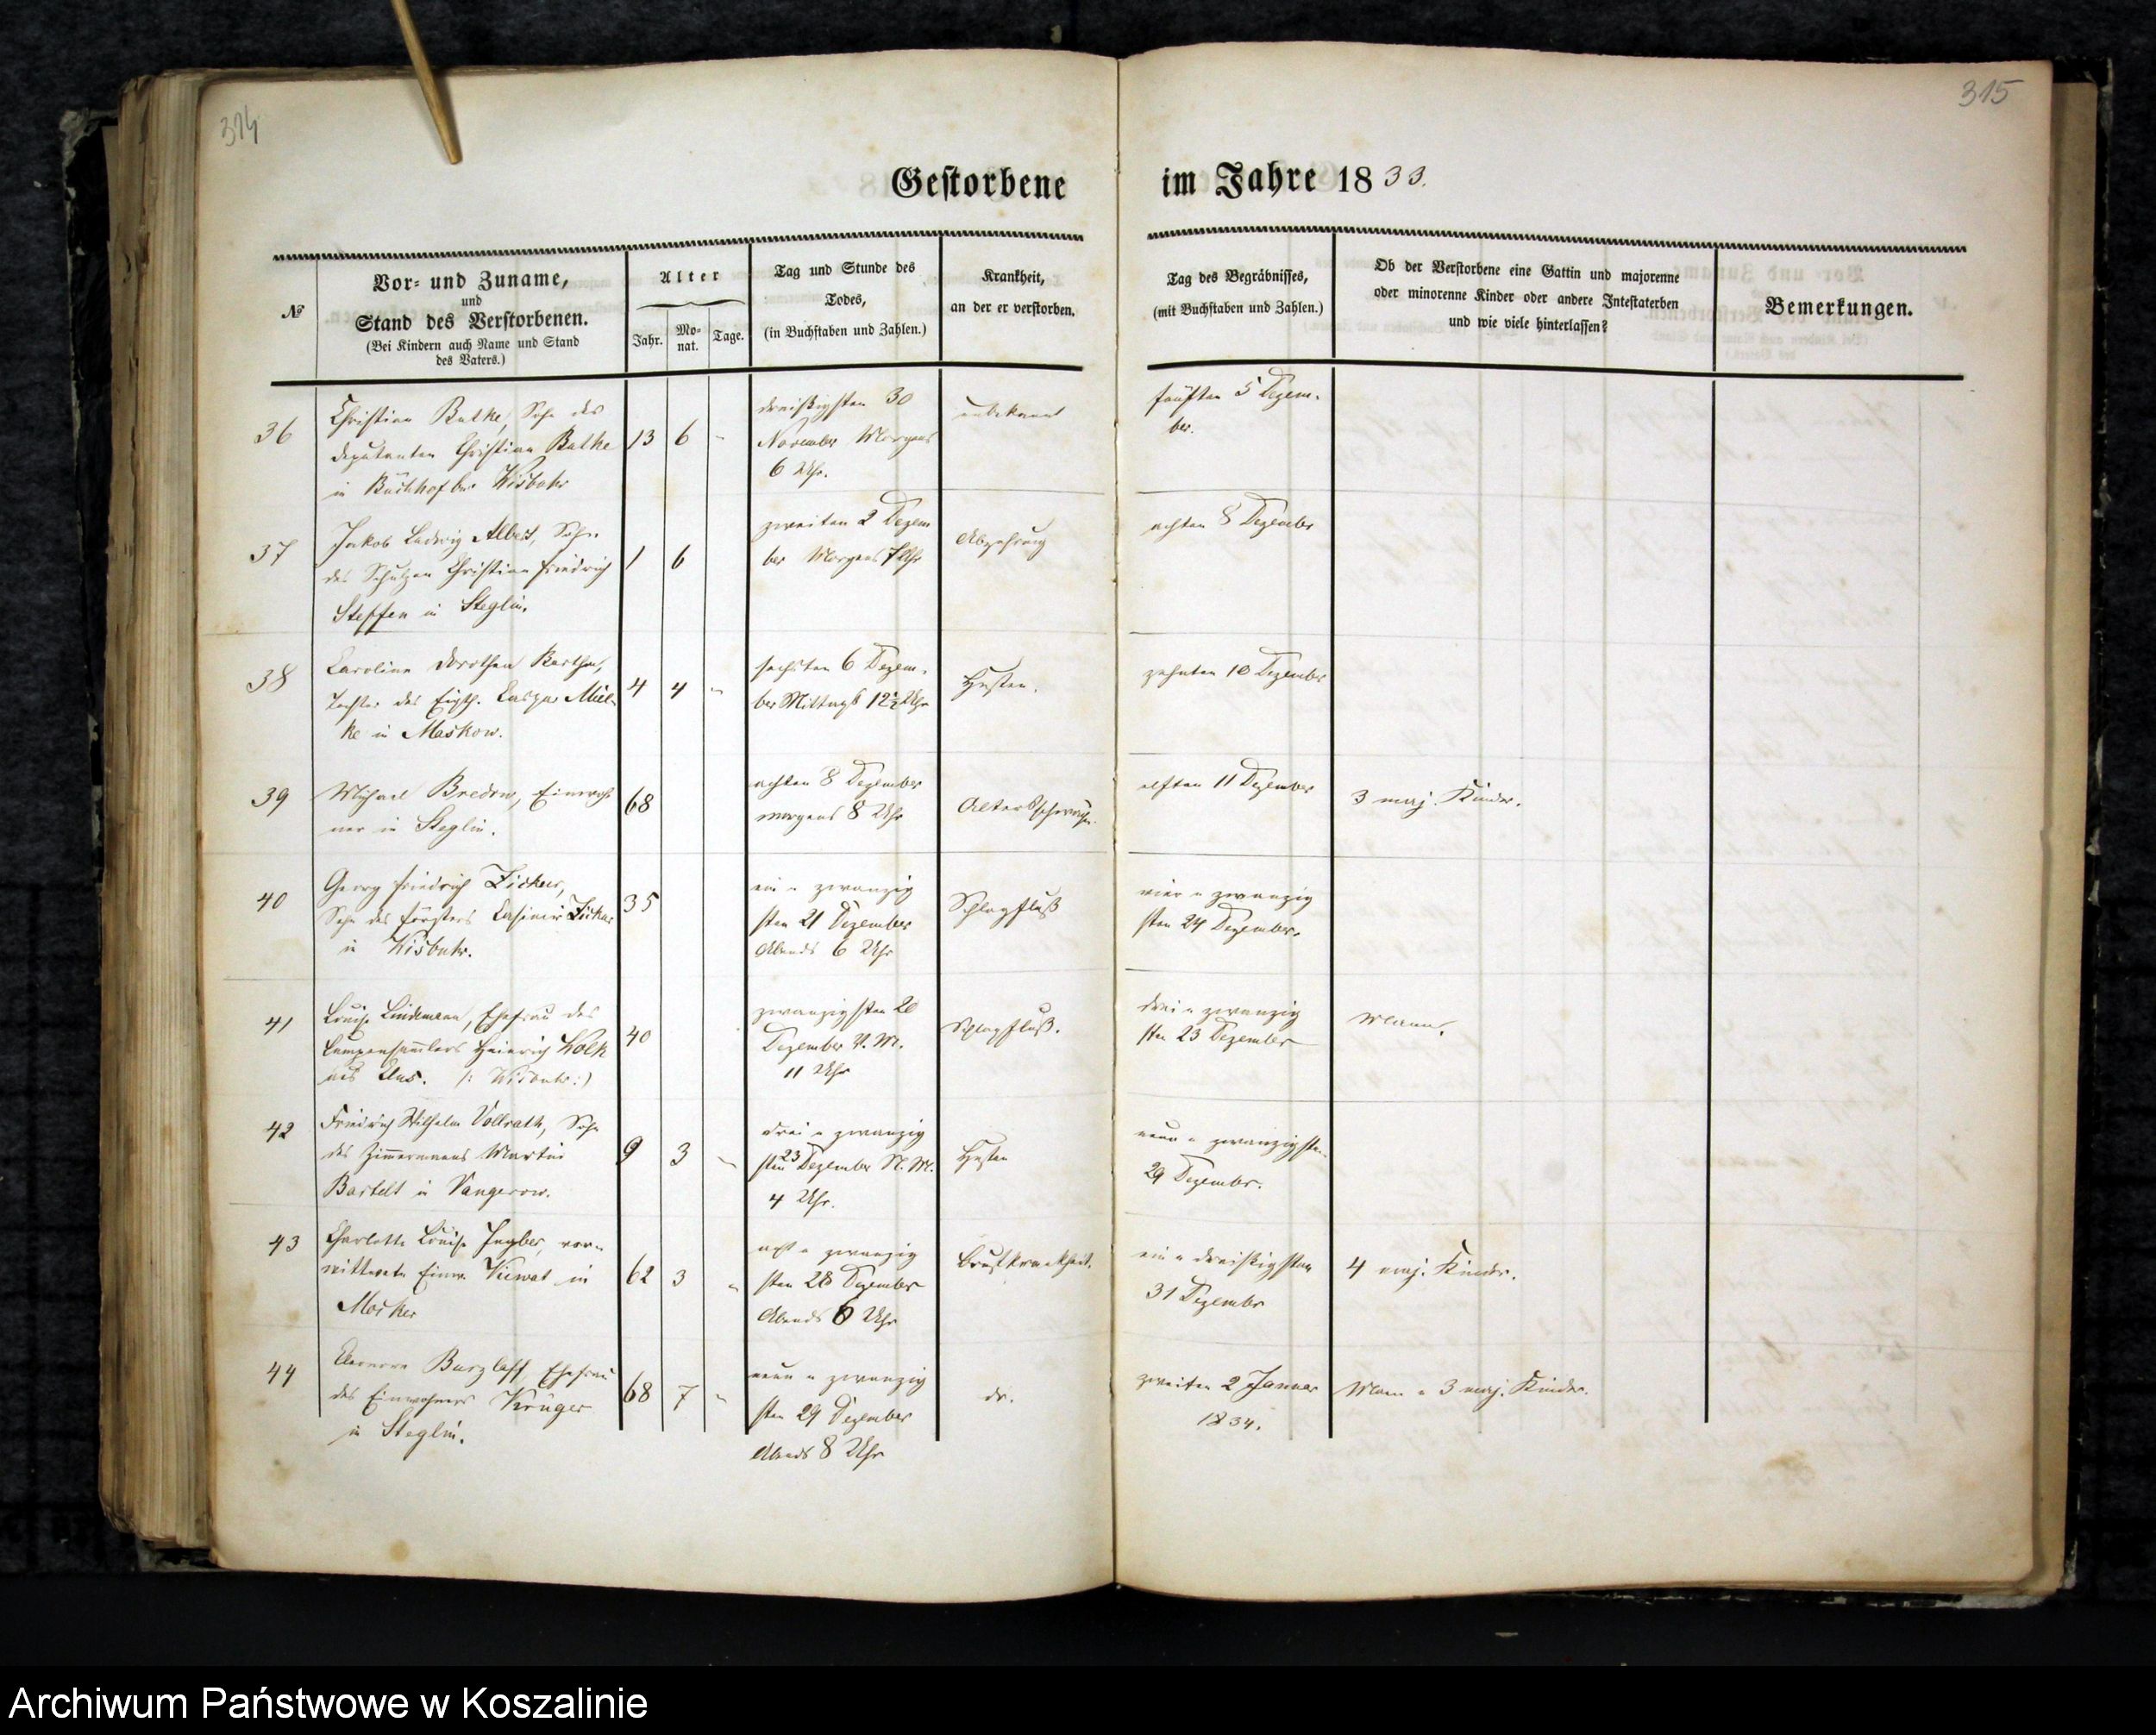 314
315
Gestorbene im Jahre 1833.
№
Vor- und Zuname,
und
Stand des Verstorbenen.
(Bei Kindern auch Name und Stand
des Vaters.)
Alter
Jahr.
Mo-
nat.
Tage.
Tag und Stunde des
Todes,
(in Buchstaben und Zahlen.)
Krankheit,
an der er verstorben.
Tag des Begräbnisses,
(mit Buchstaben und Zahlen.)
Ob der Verstorbene eine Gattin und majorenne
oder minorenne Kinder oder andere Intestaterben
und wie viele hinterlassen?
Bemerkungen.
36
Christian Rathke, Sohn des
Deputanten Christian Rathke
in Buchhof bei Wisbuhr
13 6 -
dreißigsten 30
November Morgens
6 Uhr.
unbekannt
fünften 5 Dezem-
ber.
37
Jakob Ludwig Albert, Sohn
des Schulzen Christian Friedrich
Steffen in Steglin.
1 6
zweiten 2 Dezem
ber Morgens 7 Uhr
Abzehrung
achten 8 Dezember
38
Caroline Dorothea
Tochter des Eigth. Caspar Miel-
ke in Maskow.
4 4 -
sechsten 6 Dezem-
ber Mittags 12½ Uhr
Husten.
zehnten 10 Dezember
39
Michael Bredow, Einwoh
ner in Steglin.
68
achten 8 Dezember
morgens 8 Uhr
Altersschwäche
elften 11 Dezember
3 maj. Kinder.
40
Georg Friedrich Zicker,
Sohn des Försters Casimir Zicker
in Wisbuhr.
35
ein u zwanzig
sten 21 Dezember
Abends 6 Uhr
Schlagfluß
vier u zwanzig
sten 24 Dezember.
41
Louise Lindemann, Ehefrau des
Lumpensammlers Heinrich Wolk
aus (: Wisbuhr :)
40
zwanzigsten 20
Dezember V. M.
11 Uhr
Schlagfluß.
drei u zwanzig
sten 23 Dezember
Mann.
42
Friedrich Wilhelm Vollrath, Sohn
des Zimmermanns Martin
Bartelt in Vangerow.
9 3 -
drei u zwanzig
sten 23 Dezember N. M.
4 Uhr.
Husten
neun u zwanzigsten
29 Dezember.
43
Charlotte Louise verw
wittwete Einw. in
Mocker
62 3 -
acht u zwanzig
sten 28 Dezember
Abends 6 Uhr
Brustkrankheit.
ein u dreißigsten
31 Dezember
4 maj. Kinder.
44
Eleonore Burzlaff, Ehefrau
des Einwohners Krüger
in Steglin.
68 7 -
neun u zwanzig
sten 29 Dezember
Abends 8 Uhr
do.
zweiten 2 Januar
1834.
Mann u 3 maj. Kinder.
Archiwum Państwowe w Koszalinie